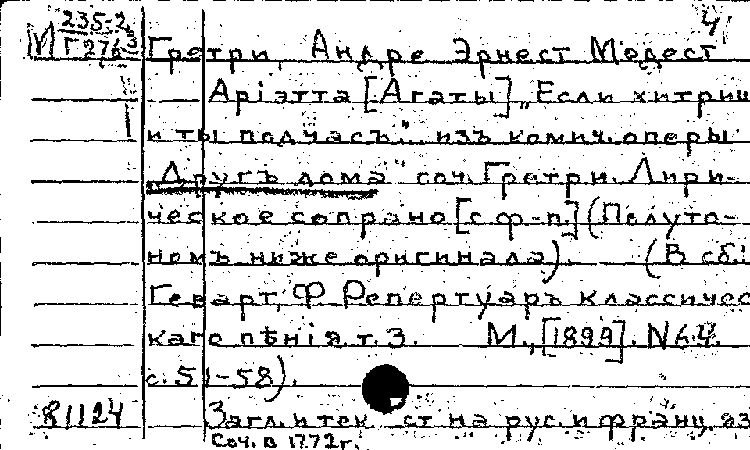 М 235-2
Г 276 3
4
Гретри, Андре Эрнест Модест
Арiэтта [Агаты] „Если хитриш
и ты подчасъ"... изъ комич. оперы
„Другъ дома" соч. Гретри. Лири-
ческое сопрано [с ф-п.] (Полуто-
номъ ниже оригинала). (В сб.:
Геварт, Ф. Репертуаръ классичес
каго пѣнія. т. 3. М., [1899]. N 64.
с. 51-58).
81124 Загл. и текст на рус. и франц. яз
Соч. в 1772 г.